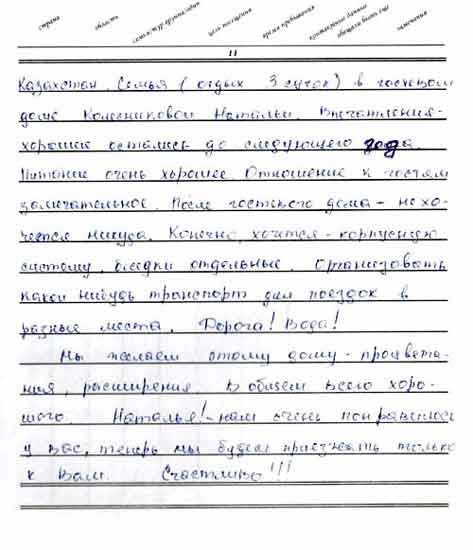 страна область семья/тур.группа/один цель посещения время пребывания контактные данные обещали быть ещё замечания
11
Казахстан. Семья (отдых 3 суток) в гостевом
доме Колесниковой Натальи. Впечатления-
хорошие остались до следующего года.
Питание очень хорошее. Отношение к гостям
замечательное. После гостевого дома - не хо-
чется никуда. Конечно, хочется - корпусную
систему, беседки отдельные. Организовать
какой нибудь транспорт для поездок в
разные места. Дорога! Вода!
Мы желаем этому дому - процвета-
ния, расширения. В общем всего хоро-
шего. Наталья! - нам очень понравилось
у Вас, теперь мы будем приезжать только
к Вам. Счастливо!!!